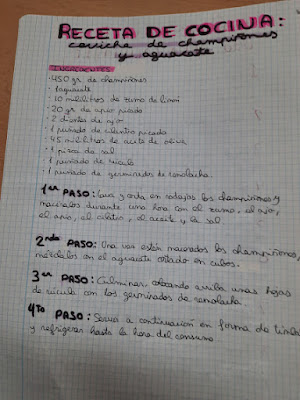 RECETA DE COCINA:
ceviche de champiñones
y aguacate
INGREDIENTES
· 450 gr de champiñones
· 1 aguacate
· 10 mililitros de zumo de limón
· 20 gr de apio picado
· 2 dientes de ajo
· 1 puñado de cilantro picado
· 45 mililitros de aceite de oliva
· 1 pizca de sal
· 1 puñado de rúcula
· 1 puñado de germinados de remolacha.
1er PASO: Lava y corta en rodajas los champiñones y
macéralos durante una hora con el zumo, el ajo,
el apio, el cilantro, el aceite y la sal.
2ndo PASO: Una vez estén macerados los champiñones,
mézclalos con el aguacate cortado en cubos.
3er PASO: Culminar colocando arriba unas hojas
de rúcula con los germinados de remolacha.
4to PASO: Servir a continuación en forma de timbal
y refrigerar hasta la hora del consumo